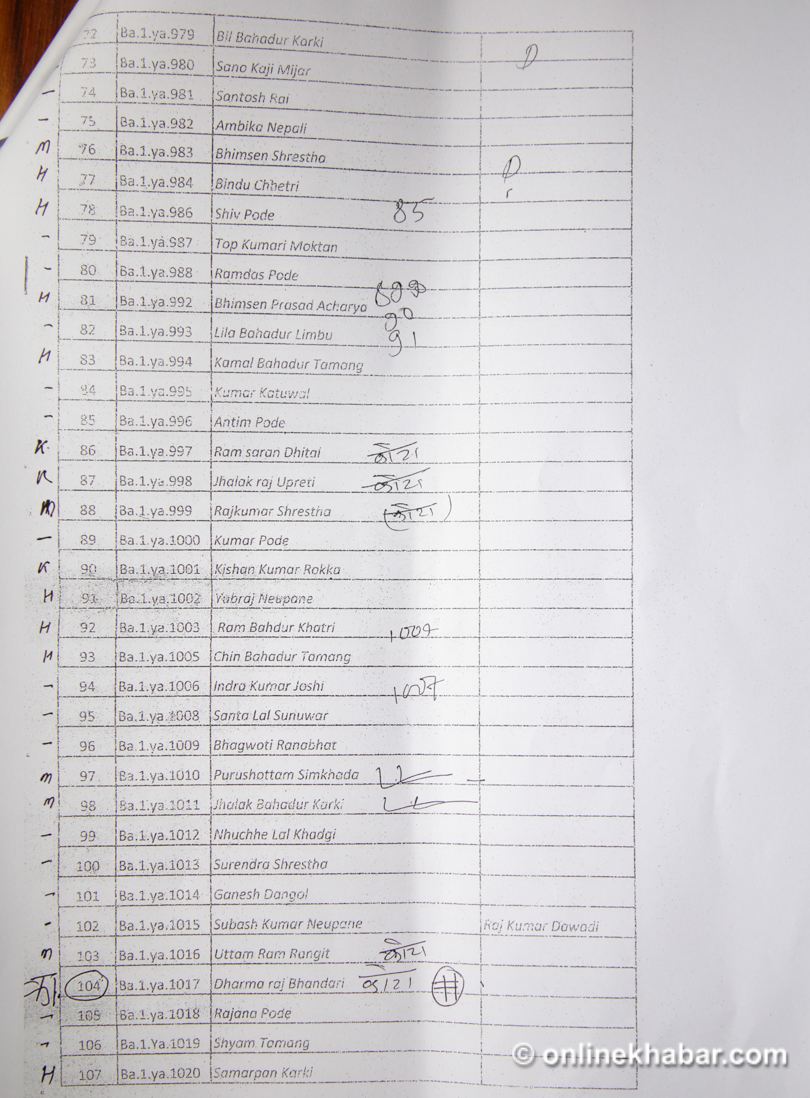 72 Ba.1.ya.979 Bil Bahadur Karki
73 Ba.1.ya.980 Sano Kaji Mijar D
— 74 Ba.1.ya.981 Santosh Rai
— 75 Ba.1.ya.982 Ambika Nepali
M 76 Ba.1.ya.983 Bhimsen Shrestha
H 77 Ba.1.ya.984 Bindu Chhetri D
H 78 Ba.1.ya.986 Shiv Pode 85
— 79 Ba.1.ya.987 Top Kumari Moktan
— 80 Ba.1.ya.988 Ramdas Pode
H 81 Ba.1.ya.992 Bhimsen Prasad Acharya 90
— 82 Ba.1.ya.993 Lila Bahadur Limbu 91
H 83 Ba.1.ya.994 Kamal Bahadur Tamang
— 84 Ba.1.ya.995 Kumar Katuwal
— 85 Ba.1.ya.996 Antim Pode
K 86 Ba.1.ya.997 Ram saran Dhital
K 87 Ba.1.ya.998 Jhalak raj Upreti
M 88 Ba.1.ya.999 Rajkumar Shrestha
— 89 Ba.1.ya.1000 Kumar Pode
K 90 Ba.1.ya.1001 Kishan Kumar Rokka
H 91 Ba.1.ya.1002 Yubraj Neupane
H 92 Ba.1.ya.1003 Ram Bahdur Khatri
H 93 Ba.1.ya.1005 Chin Bahadur Tamang
— 94 Ba.1.ya.1006 Indra Kumar Joshi 1007
— 95 Ba.1.ya.1008 Santa Lal Sunuwar
— 96 Ba.1.ya.1009 Bhagwoti Ranabhat
m 97 Ba.1.ya.1010 Purushottam Simkhada
m 98 Ba.1.ya.1011 Jhalak Bahadur Karki
— 99 Ba.1.ya.1012 Nhuchhe Lal Khadgi
— 100 Ba.1.ya.1013 Surendra Shrestha
— 101 Ba.1.ya.1014 Ganesh Dangol
— 102 Ba.1.ya.1015 Subash Kumar Neupane Raj Kumar Dawadi
m 103 Ba.1.ya.1016 Uttam Ram Rangit
104 Ba.1.ya.1017 Dharma raj Bhandari
— 105 Ba.1.ya.1018 Rajana Pode
— 106 Ba.1.Ya.1019 Shyam Tamang
H 107 Ba.1.ya.1020 Samarpan Karki
© onlinekhabar.com